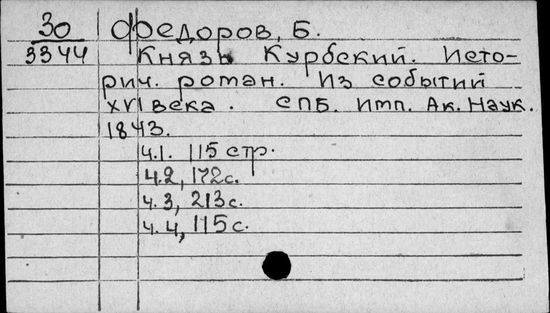 30 Федоров, Б.
3344 Князь Курбский. Исто-
рич. роман. Из событий
XVI века. СПБ. Имп. Ак. Наук.
1843.
ч.1. 115 стр.
ч.2, 172 с.
ч.3, 213 с.
ч.4, 115 с.